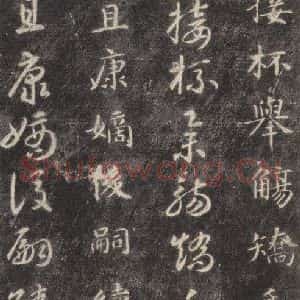 接杯舉觴矯
接杯舉觴矯
且康嫡後嗣續
且康嫡後嗣
Shufawang.CN